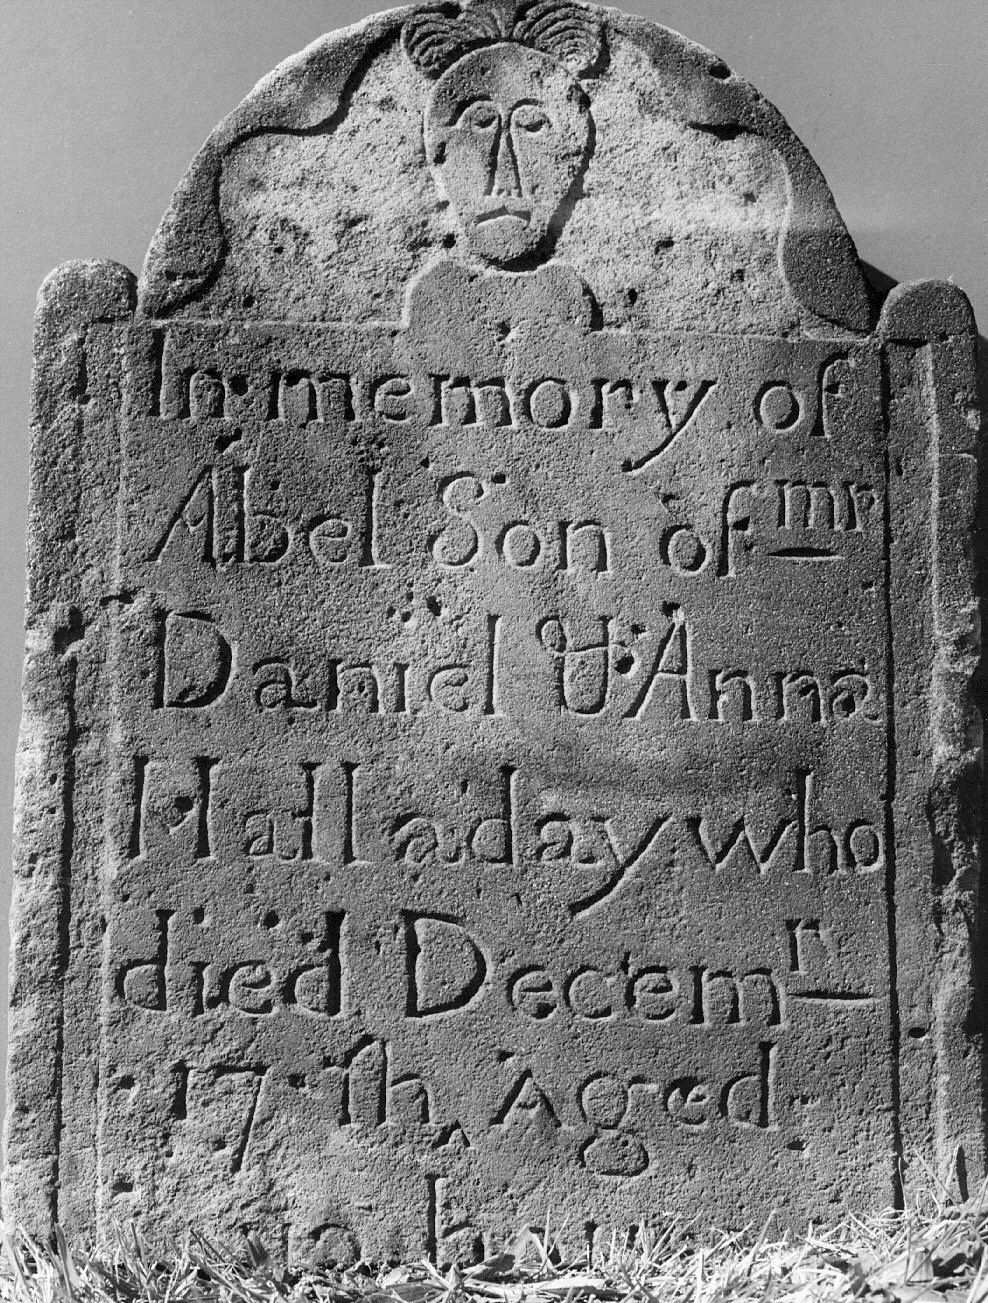 In memory of
Abel Son of mr
Daniel & Anna
Halladay who
died Decemr
17th Aged